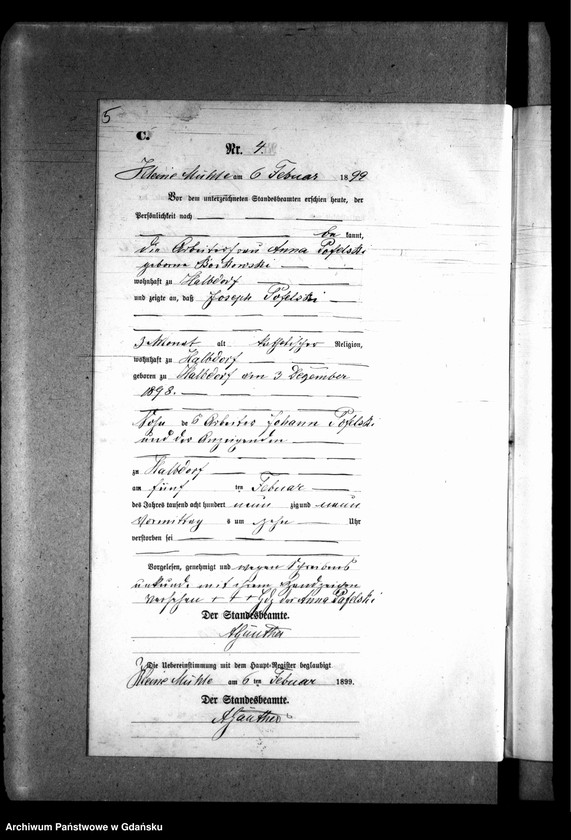 5
C.
Nr. 4.
Kleine Mühle am 6 Februar 1899
Vor dem unterzeichneten Standesbeamten erschien heute, der
Persönlichkeit nach
be kannt,
die Arbeiterfrau Anna Pofelski
geborne Borkowski
wohnhaft zu Halbdorf
und zeigte an, daß Joseph Pofelski
3 Monat alt katholischer Religion,
wohnhaft zu Halbdorf
geboren zu Halbdorf den 3. Dezember
1898.
Sohn des Arbeiter Johann Pofelski
und der Anzeigenden
zu Halbdorf
am fünf ten Februar
des Jahres tausend acht hundert neun zig und neun
Vormittag s um zehn Uhr
verstorben sei
Vorgelesen, genehmigt und wegen Schreibens
unkunde mit ihrem Handzeichen
versehen + + + Hdz der Anna Pofelski
Der Standesbeamte.
AGünther
Die Uebereinstimmung mit dem Haupt-Register beglaubigt
Kleine Mühle am 6 ten Februar 1899.
Der Standesbeamte.
AGünther
Archiwum Państwowe w Gdańsku